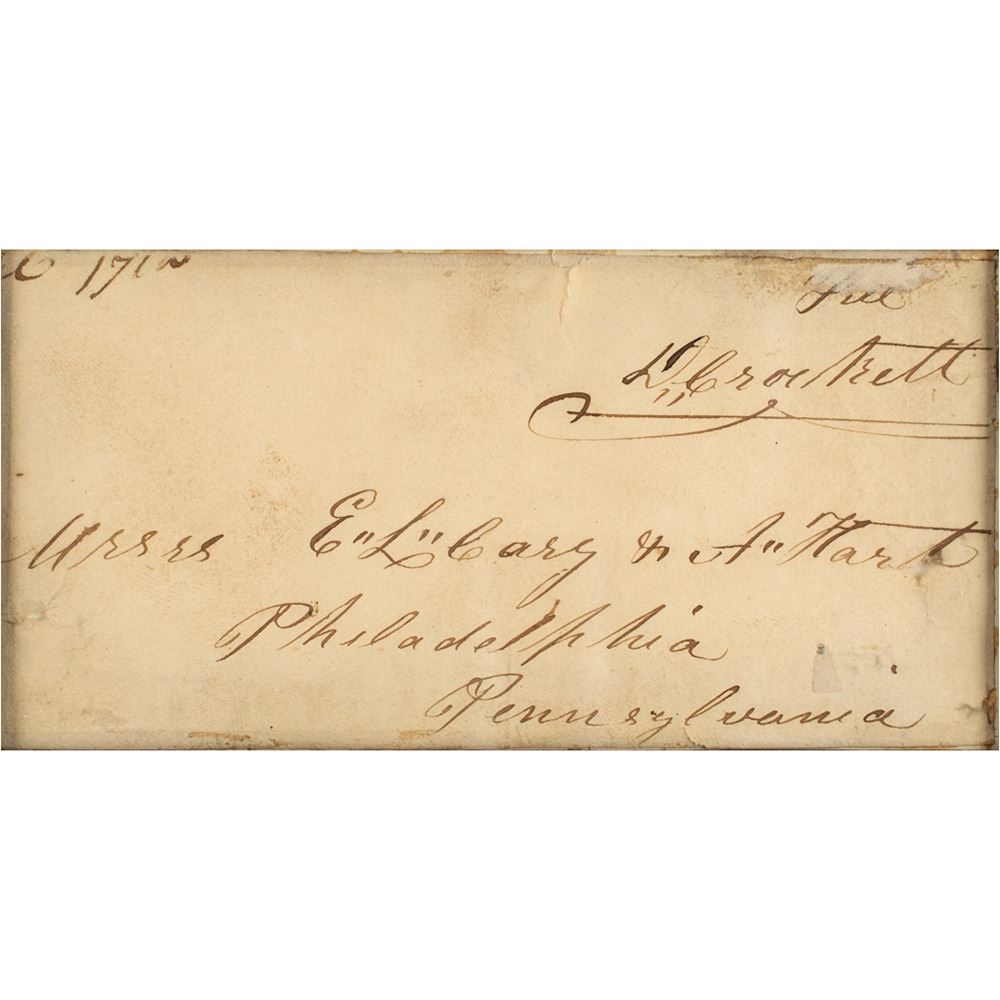 Free
D,, Crockett
Messrs E,, L,, Cary & A,, Hart
Philadelphia
Pennsylvania